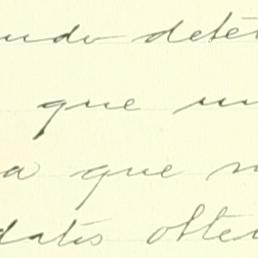 undo deter
que un
a que n
datos obten